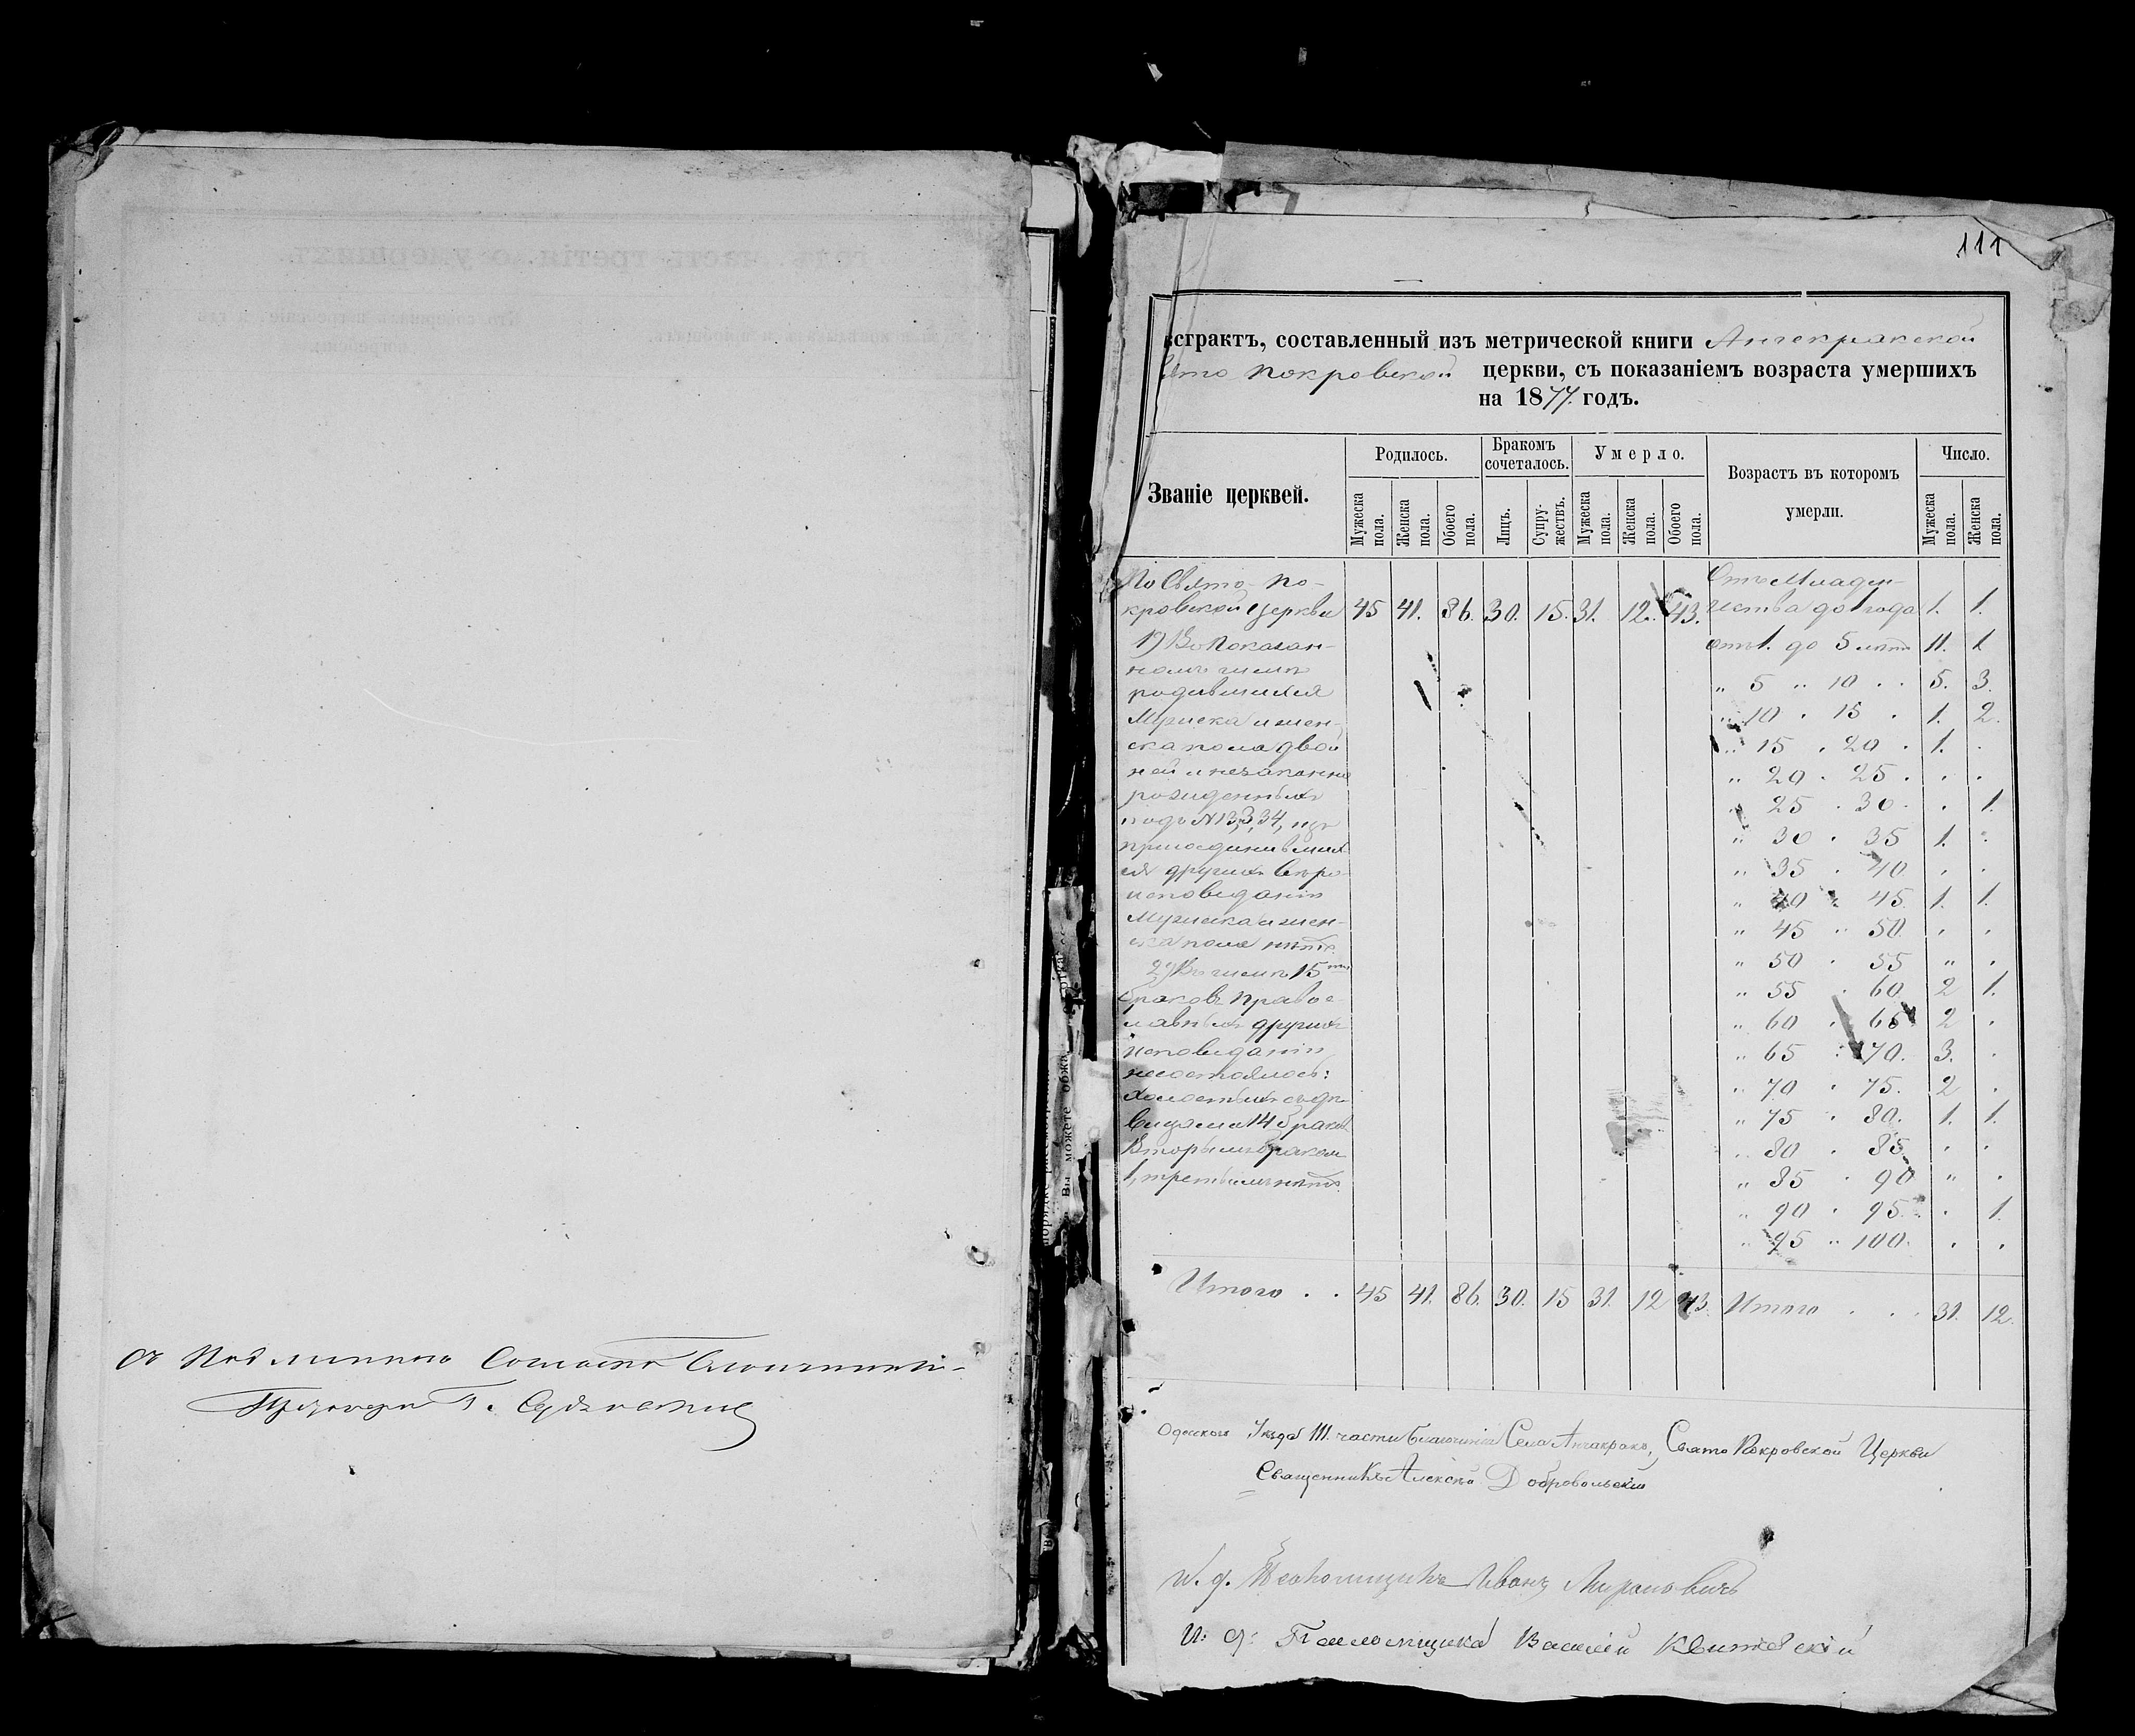 Съ подлиннымъ
111
кстрактъ, составленный изъ метрической книги Анчекракской
ято Покровской церкви, съ показаніемъ возраста умершихъ
на 1877 годъ.
Званіе церквей.
Родилось.
Бракомъ сочеталось.
Умерло.
Возрастъ въ которомъ умерли.
Число.
Мужеска пола.
Женска пола.
Обоего пола.
Лицъ.
Супружествъ.
Мужеска пола.
Женска пола.
Обоего пола.
Мужеска пола.
Женска пола.
По Свято-По-
кровской Церкви 45 41. 86. 30. 15. 31. 12. 43.
1) Въ показан-
номъ числѣ
родившихся
Мужеска и жен-
ска пола двой
ней и незаконно
рожденныхъ
подъ №13, 3, 34, изъ
присоединивших
ся другихъ вѣро-
исповѣданій
Мужеска и жен-
ска пола нѣтъ.
2) Въ числѣ 15ти
браковъ правос-
лавныхъ другихъ
исповѣданій
несостоялось:
холостыхъ съ дѣ-
вицами 14 браков
Вторымъ бракомъ
1, третьимъ нѣтъ.
Отъ Младен-
чества до 1 года 1. 1.
отъ 1. до 5 лѣтъ 11. 1
„ 5 „ 10 . . 5. 3.
„ 10 . 15 . 1. 2.
„ 15 . 20 . 1. .
„ 20 . 25 . . .
„ 25 . 30 . . 1.
„ 30 . 35 1. .
„ 35 . 40 . .
„ 40 „ 45. 1. 1.
„ 45 „ 50. . .
„ 50 . 55 „ .
„ 55 . 60 2 1.
„ 60 . 65 2 .
„ 65 . 70. 3. .
„ 70 . 75. 2 .
„ 75 . 80. 1. 1.
„ 80 . 85 . .
„ 85 . 90 „ .
„ 90 . 95. . 1.
„ 95 „ 100. . .
Итого . . 45 41. 86. 30. 15 31. 12 43. Итого . . . 31. 12.
Одесскаго Уѣзда III. части благочинія Села Анчакрака, Свято Покровской Церкви
Священникъ Алексѣй Добровольскій
И. д. Псаломщикъ Иванъ
И: д: Псаломщика Василій
Вы можете обжа